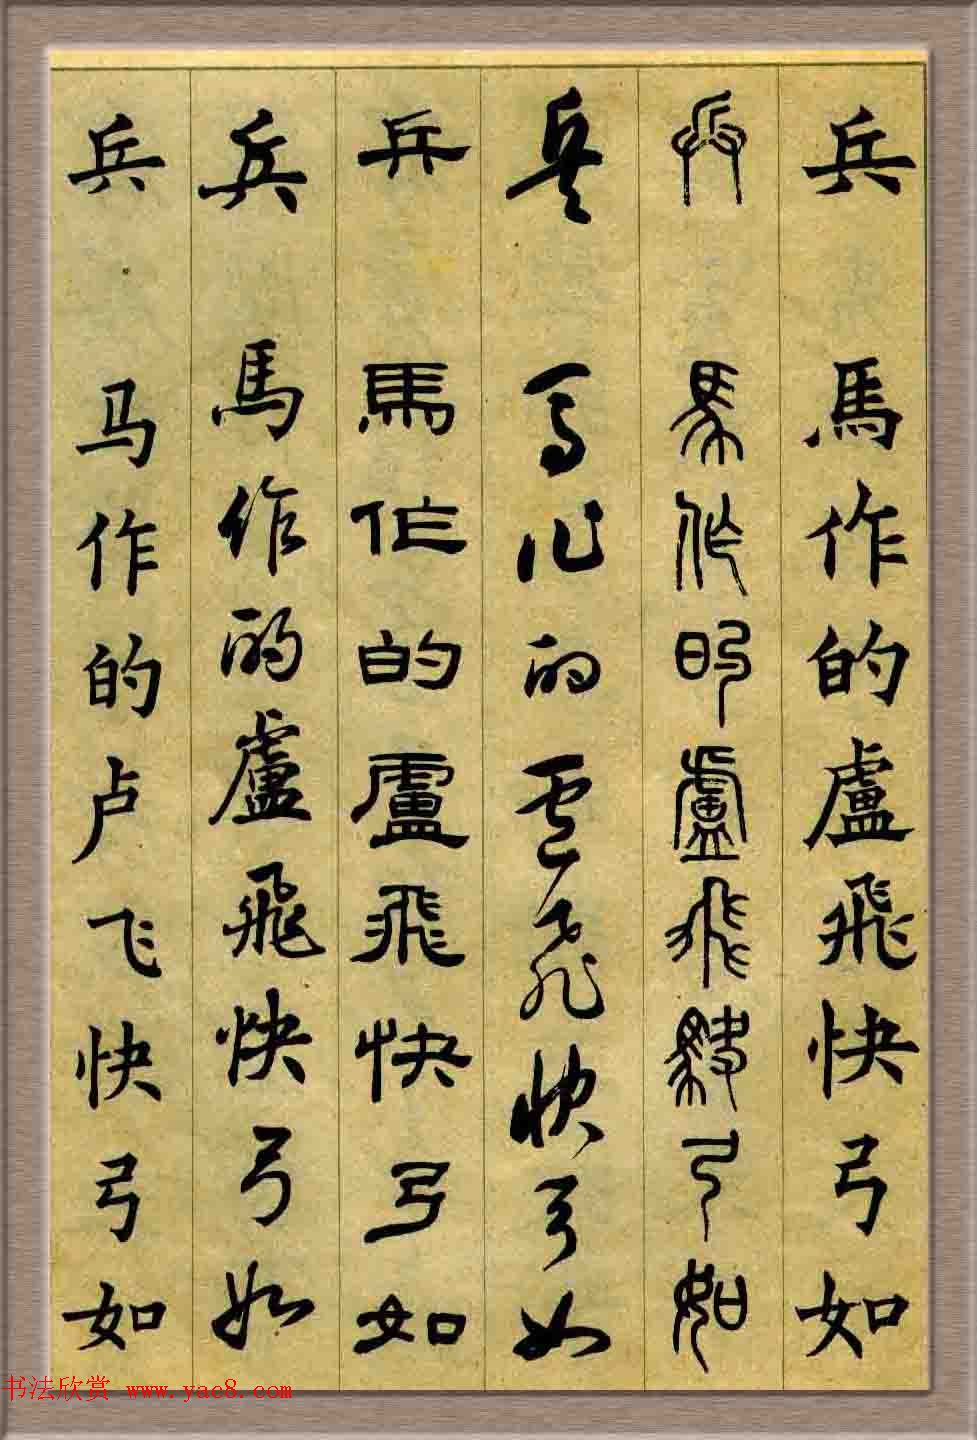 兵 馬作的盧飛快弓如
兵 馬作的盧飛快弓如
兵 馬作的盧飛快弓如
兵 馬作的盧飛快弓如
兵 馬作的盧飛快弓如
兵 马作的卢飞快弓如
书法欣赏 www.yac8.com